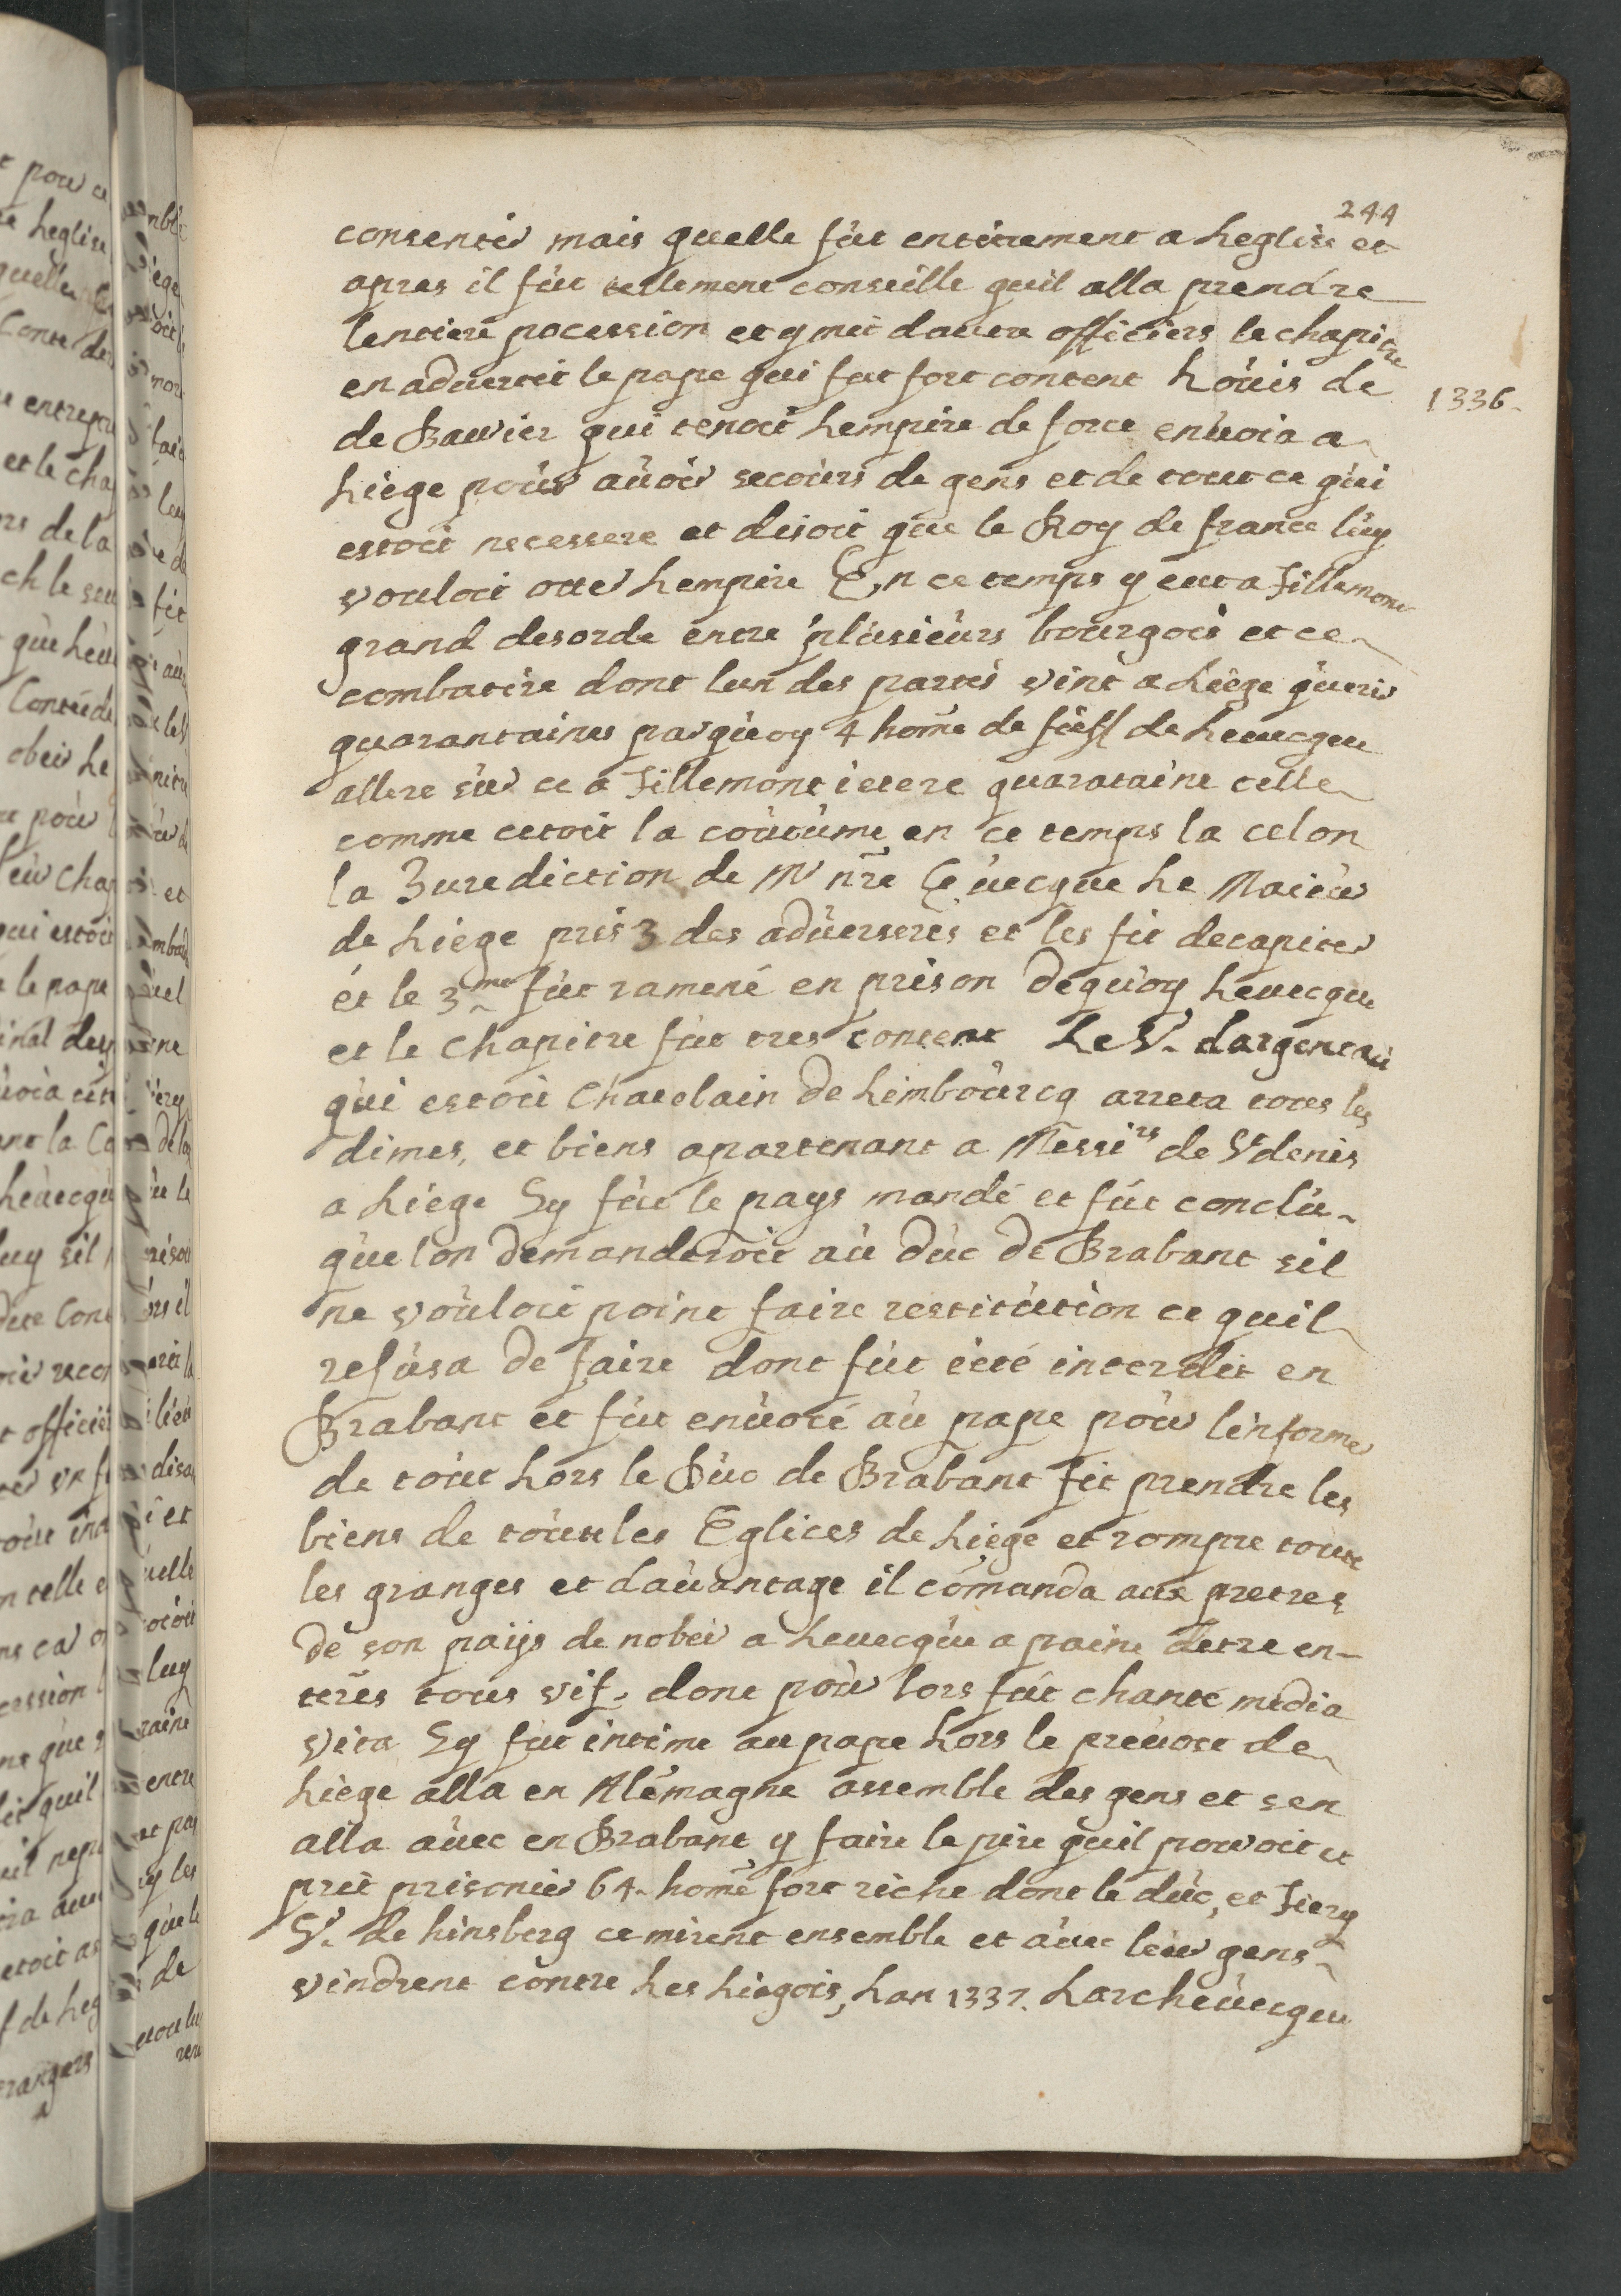 244
consentir mais quelle fút entitrement a Leglise et
apres il fút tellement conseille quil alla prendre
lentiere pocession et y mit dautre officiers le chapitre
en aduertit le pape qui fut fort content Loúis de
1336
de Bauvier qui tenoit Lempire de force enuoia a
Liege poúr aúoir secoúrs de gens et de tout ce qúi
estoit necessere et disoit qúe le Roy de france lúy
vouloit otter Lempire En ce temps y eut a Tillemont
grand desorde entre plúsieúrs bourgois et ce
combatire dont lun des partis vint a Liége quéris
quarantaines parqúoy 4 hom̃e de fieff de Leuecque
allere súr ce a Tillemont ietere quarataine telle
comme cetoit la coútúme en ce temps la celon
la Jurediction de Mr nr̃e Eúecque Le Maieúr
de Liége pris 3 des adúerserés et les fit decapiter
ét le 3me fút ramené en prison dequóy Leuecque
et le chapitre fút tres content Le Sr. dargenteaú
qúi estoit Chatelain de Limboúrcq arreta tous les
dimes, et biens apartenant a Messirs de St denis
a Liége Sy fút le pays mandé et fút conclú
qúe lon demanderoit aú dúc de Brabant sil
ne voúloit point faire restitútion ce quil
refúsa de faire dont fút ieté interdit en
Brabant et fút enúoié aú pape poúr linformer
de toút Lors le Dúc de Brabant fit prendre les
biens de toúte les Eglices de Liége et rompre toute
les granges et daúantage il com̃anda aux pretres
de son paÿs de nobeir a Leuecqúe a paine detre en-
terés tous vif, donc poúr lors fút chanté media
vita Sy fut intime au pape Lors le preúost de
Liége alla en Alémagne assemble des gens et sen
alla aúec en Brabant y faire le pire qúil pouvoit et
prit prisonier 64 hom̃e fort riche dont le dúc, et Tiery
Sr. de hinsberg ce mirent ensemble et aúec leúr gens
vindrent contre Les Liegois, Lan 1337. Larcheúecque